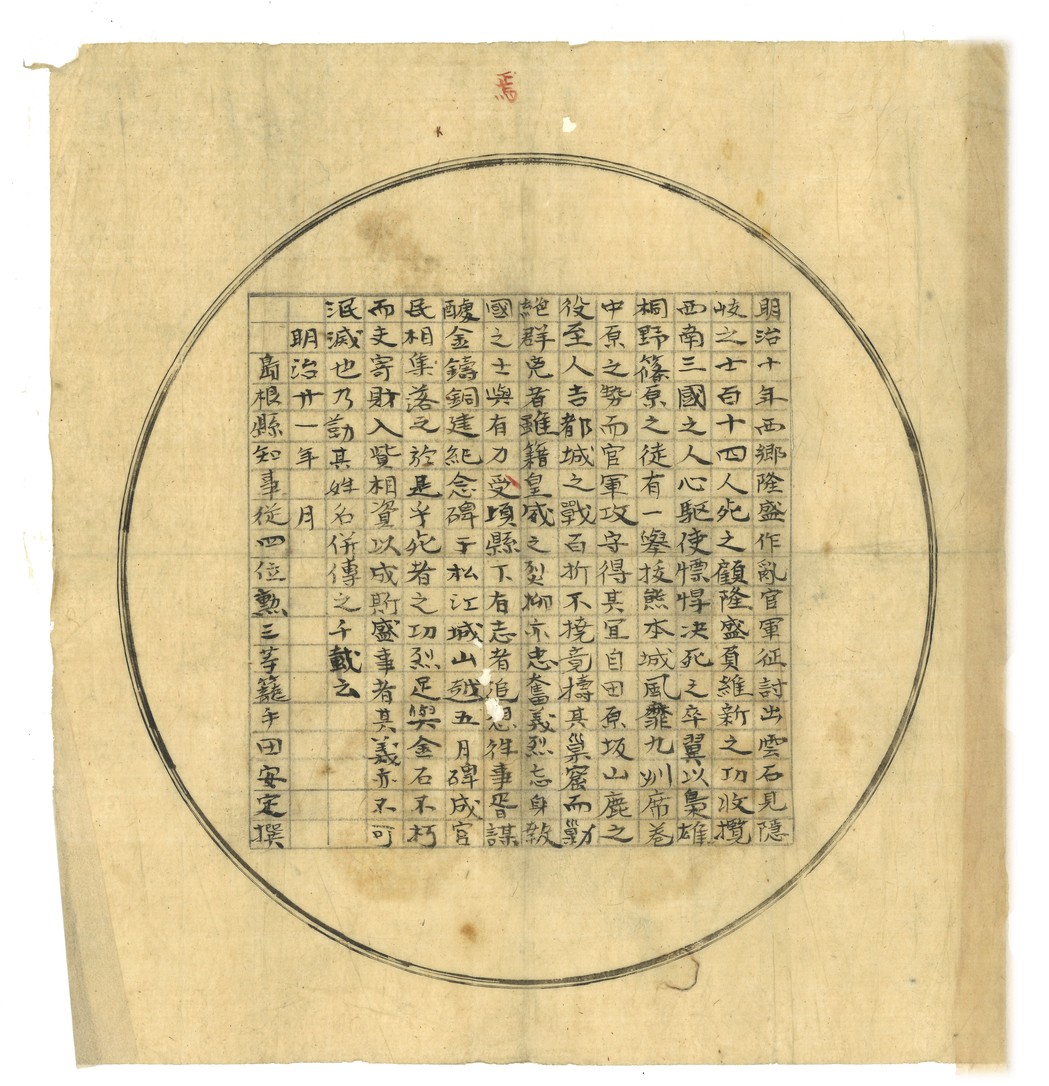 焉
明治十年西郷隆盛作亂官軍征討出雲石見隱
岐之士百十四人死之顧隆盛負維新之功收攬
西南三國之人心駆使慓悍决死之卒翼以梟雄
桐野篠原之徒有一擧拔熊本城風靡九州席巻
中原之勢而官軍攻守得其宜自田原坂山鹿之
役至人吉都城之戰百折不撓竟擣其巢窟而勦
絶群兇者雖籍皇威之烈抑亦忠奮義烈忘身殺
國之士與有力受頃縣下有志者追想徃事胥謀
醵金鑄銅建紀念碑于松江城山越五月碑成官
民相集落之於是乎死者之功烈足與金石不朽
而寄財入貲相資以成斯盛事者其義亦不可
泯滅也乃勒其姓名併傳之千載云
明治廿一年　月
島根縣知事従四位勲三等籠手田安定撰